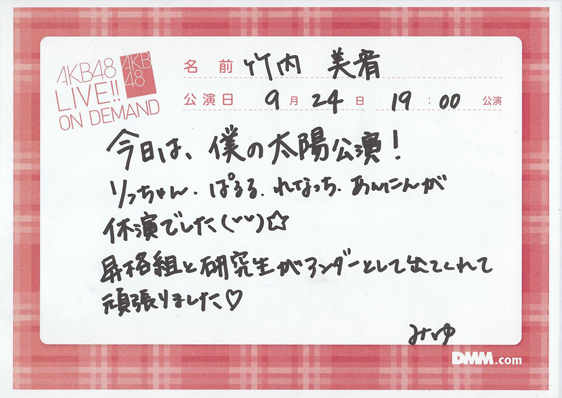 AKB48
LIVE!!
ON DEMAND
AKB
48
名前 竹内 美宥
公演日 9月24日 19:00 公演
今日は、僕の太陽公演!
りっちゃん、ぱるる、れなっち、あんにんが
休演でした(˘˘)☆
昇格組と研究生がアンダーとして出てくれて
頑張りました♡
みゆ
DMM.com